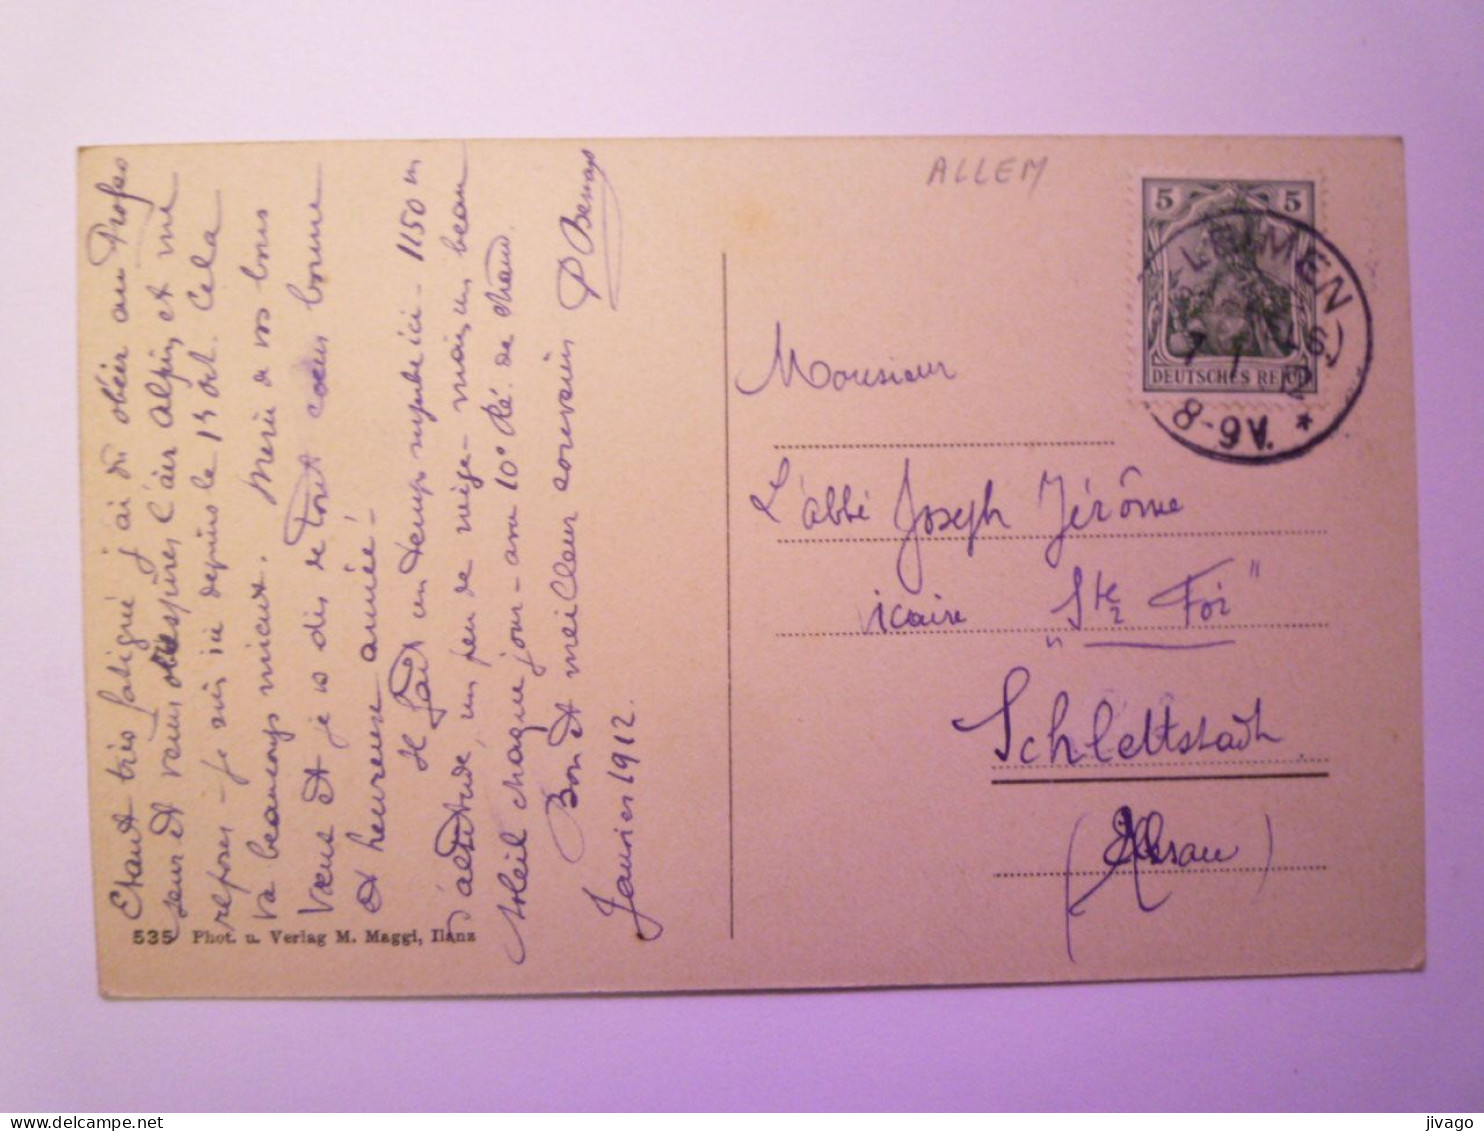 Etant très fatigué j'ai dû obéir au Profes
seur et venir respirer l'air Alpin, et me
reposer - je suis ici depuis le 13 Oct. Cela
va beaucoup mieux. Merci de vos bons
vœux et je vs dis de tout cœur bonne
et heureuse année! -
Il fait un temps superbe ici - 1150 m
d'altitude, un peu de neige - mais un beau
soleil chaque jour - avec 10° Ré. de chaud.
Bon et meilleur souvenir P
Janvier 1912.
535 Phot. u. Verlag M. Maggi, Ilanz
ALLEM
5 5
DEUTSCHES REICH
LEIMEN
7 1 12
8-9V. *
Monsieur
L'abbé Joseph Jérôme
icaire "Ste Foi"
Schlettstadt
(Alsace)
jivago
delcampe.net